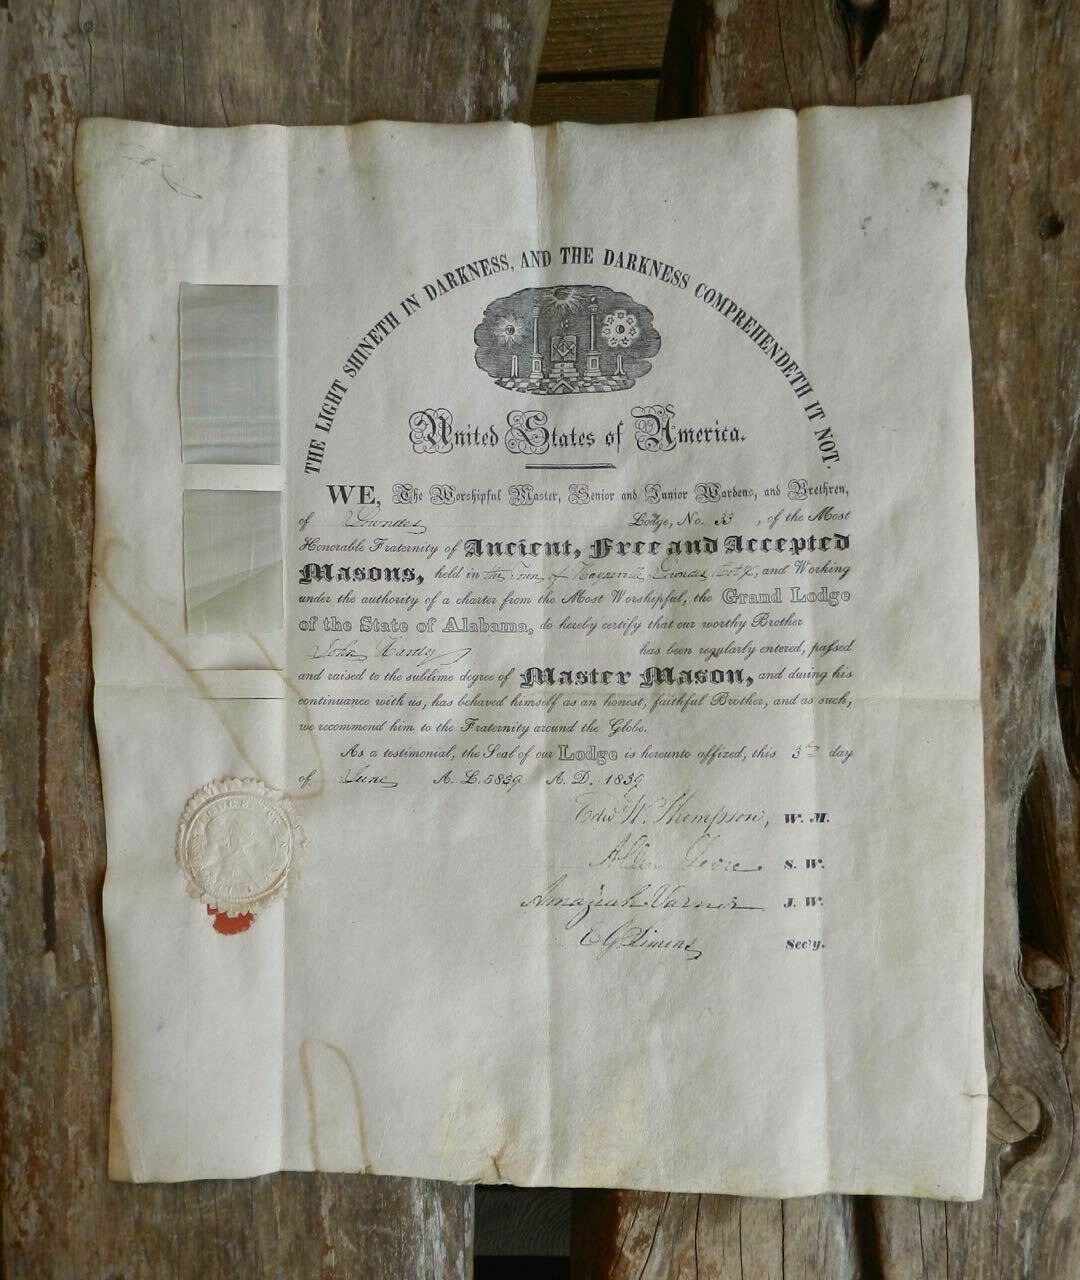 THE LIGHT SHINETH IN DARKNESS, AND THE DARKNESS COMPREHENDETH IT NOT.
United States of America.
WE, The Worshipful Master, Senior and Junior Wardens, and Brethren,
of Lowndes Lodge, No. 33, of the Most
Honorable Fraternity of Ancient, Free and Accepted
Masons, held in the Town of Lowndes, and Working
under the authority of a charter from the Most Worshipful, the Grand Lodge
of the State of Alabama, do hereby certify that our worthy Brother
John Hardy has been regularly entered, passed
and raised to the sublime degree of Master Mason, and during his
continuance with us, has behaved himself as an honest, faithful Brother, and as such,
we recommend him to the Fraternity around the Globe.
As a testimonial, the Seal of our Lodge is hereunto affixed, this day
of June A. L. 5839 A. D. 1839
Edw W. Thompson, W. M.
S. W.
Amaziah Varner J. W.
E G Simons Sec'y.